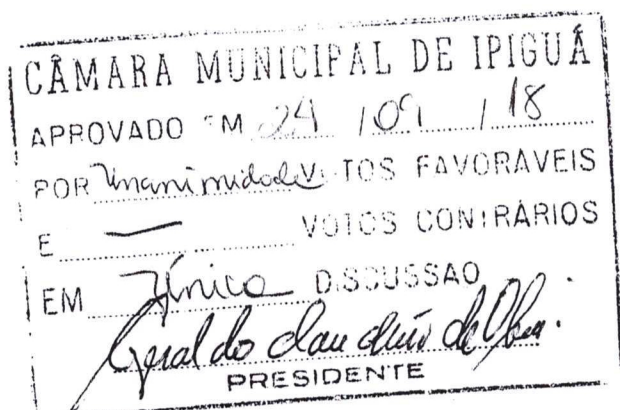 CÂMARA MUNICIPAL DE IPIGUÁ
APROVADO EM 24 / 09 / 18
POR Unanimidade VOTOS FAVORÁVEIS
E — VOTOS CONTRÁRIOS
EM Única DISCUSSAO
Geraldo
PRESIDENTE